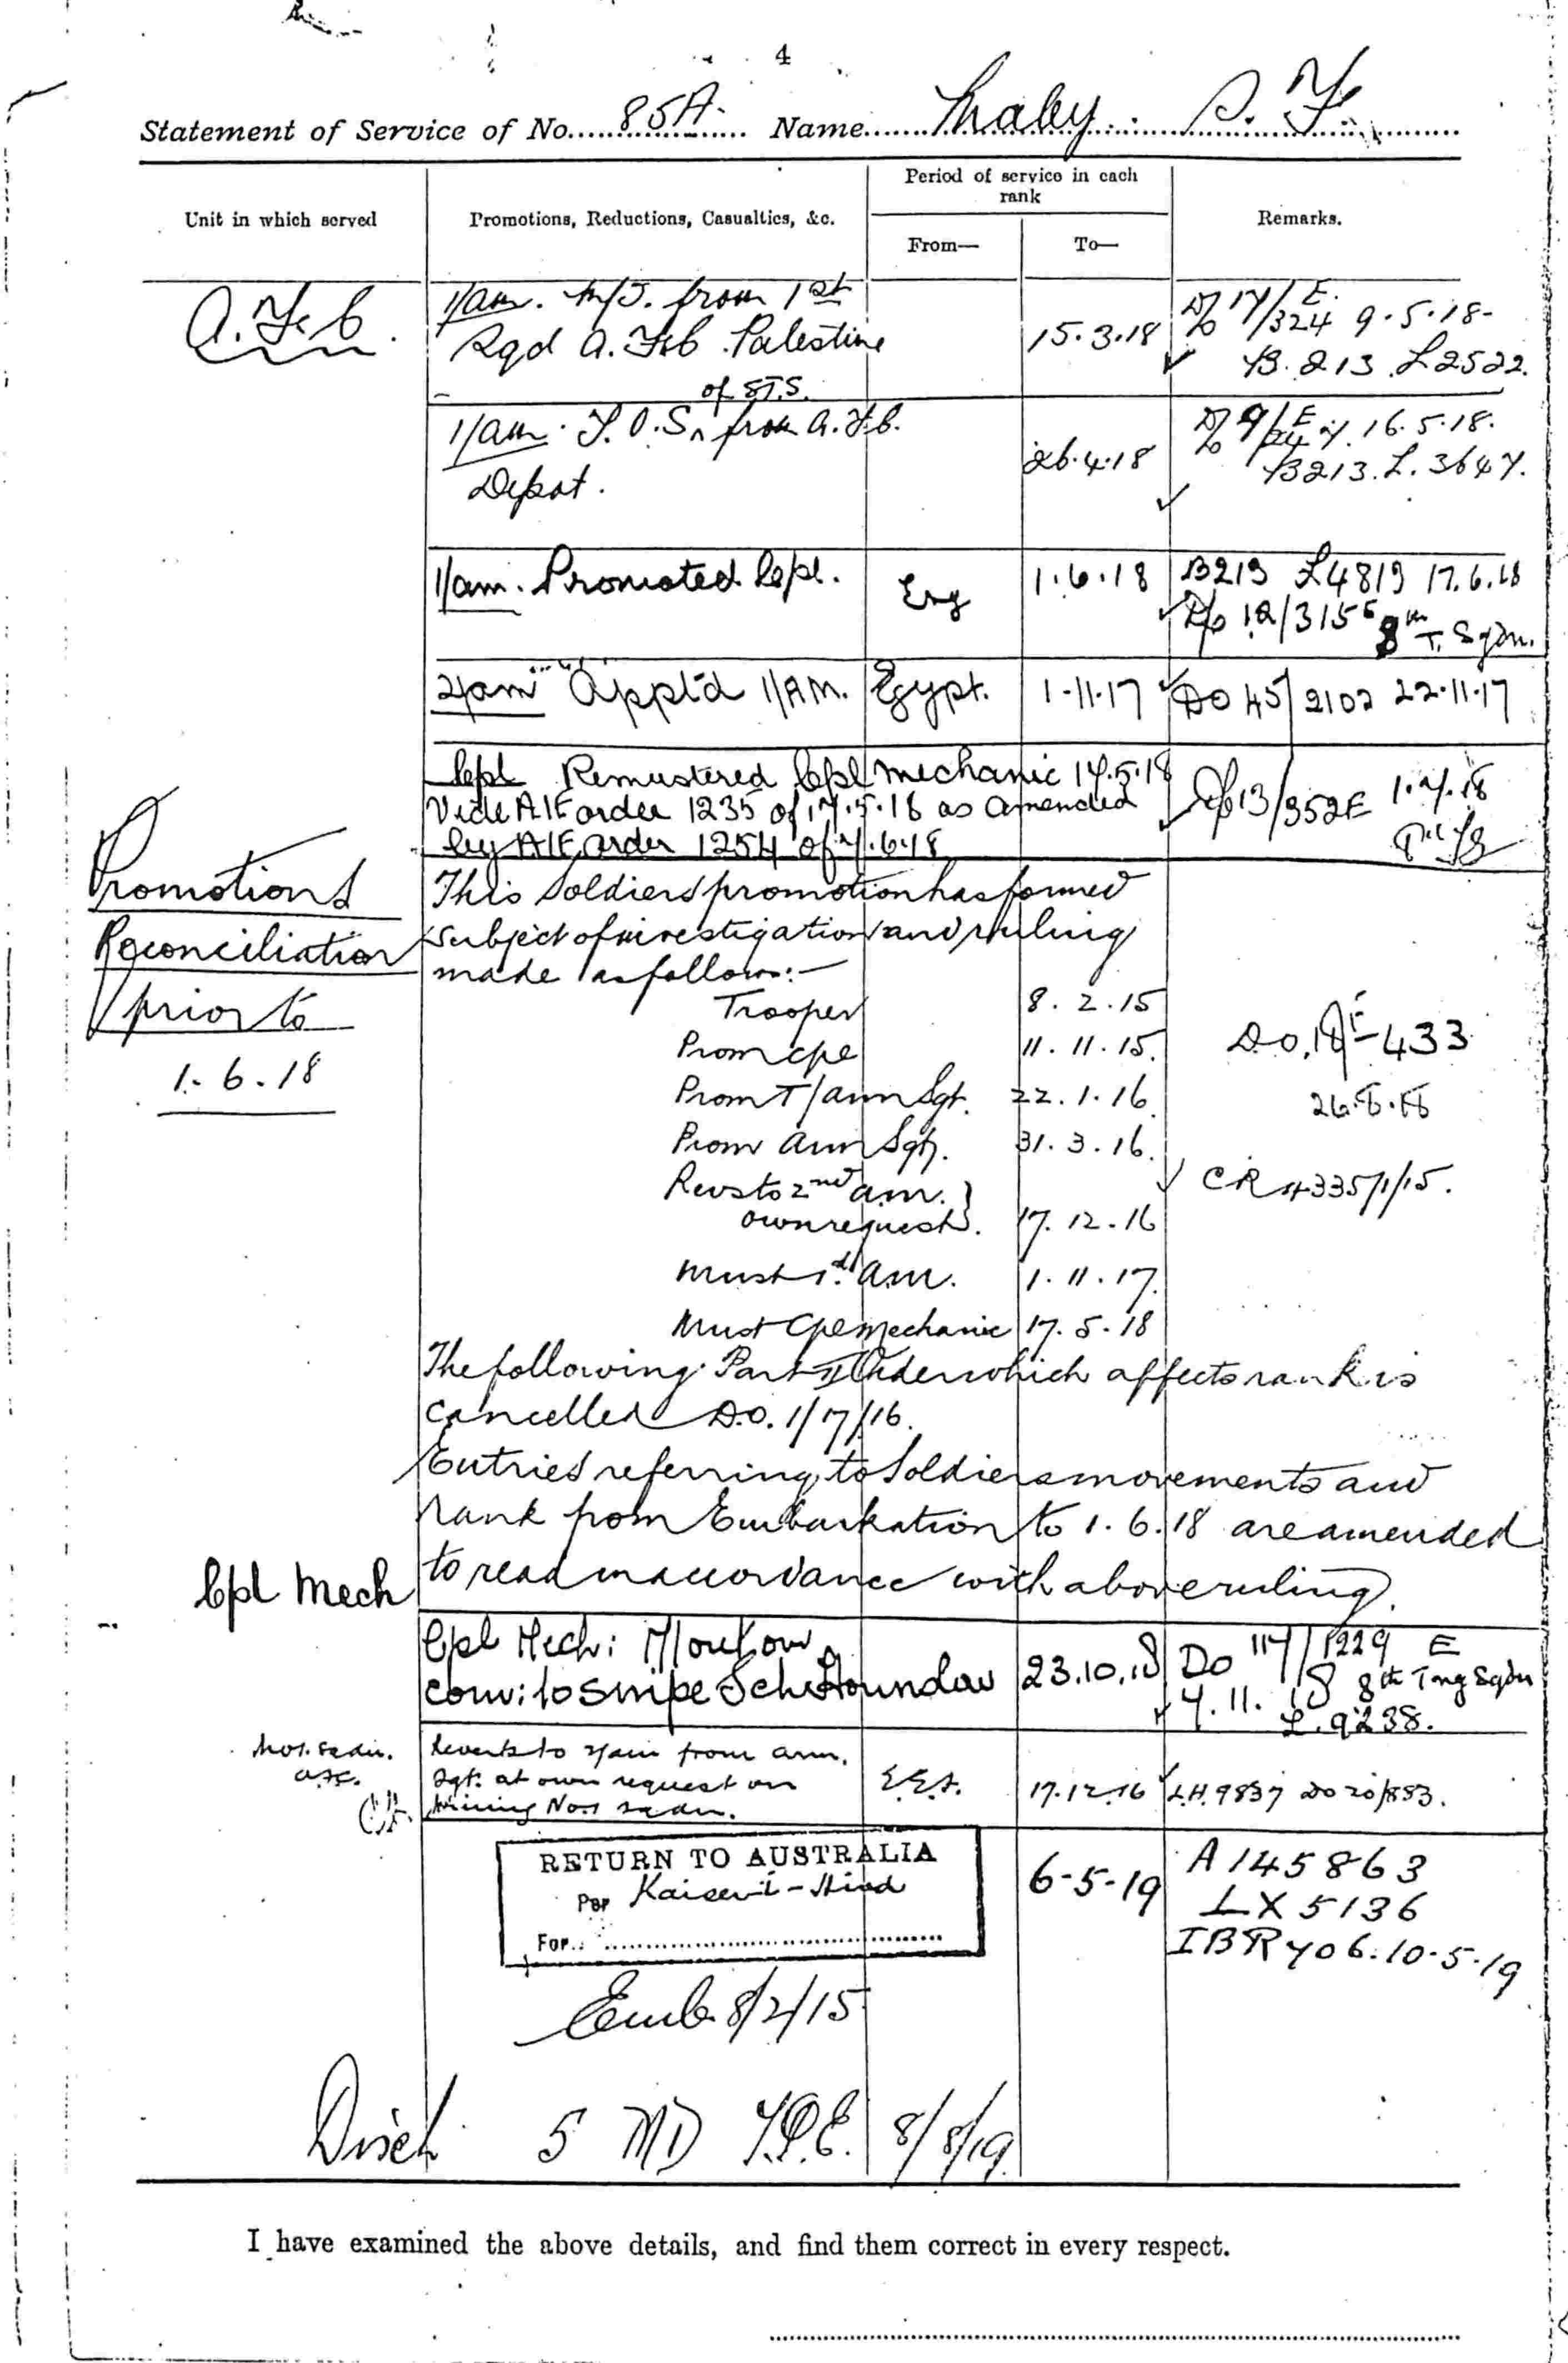 4
Statement of Service of No. 85A. Name Maby. P. F.
Unit in which served
Promotions, Reductions, Casualties, &c.
Period of service in each rank
From—
To—
Remarks.
A.F.C.
1/am. M/I. from 1st
Sqd A.F.C. Palestine
15.3.18
DO 17/324 E. 9.5.18-
B.213 L2522.
1/am. T.O.S. of 8T.S. from A.F.C.
Depot.
26.4.18
16.5.18.
B213. L. 3647.
1/am. Promoted Cpl.
Eng
1.6.18
B213 L4819 17.6.18
DO 12/315 E 8th T. Sqdn.
2/am Appt'd 1/AM.
Egypt.
1-11-17
DO 45/2102 22.11.17
Cpl Remustered Cpl Mechanic 17.5.18
Vide AIF order 1235 of 17.5.18 as amended
by AIF order 1254 of 7.6.18
DO 13/352E 1.7.18
Promotions
Reconciliation
prior to
1.6.18
This Soldiers promotion has formed
subject of investigation and ruling
made as follows:—
Trooper 8.2.15
Prom Cpl 11.11.15.
Prom T/arm Sgt. 22.1.16.
Prom arm Sgt. 31.3.16.
Revs to 2nd am.
own request. 17.12.16
Must 1st am. 1.11.17.
Must Cpl Mechanic 17.5.18
D.O. 18E-433
CR 4335/1/15.
The following Part II Order which affects rank is
cancelled D.O. 1/17/16.
Entries referring to Soldiers movements and
rank from Embarkation to 1.6.18 are amended
to read in accordance with above ruling.
Cpl Mech
Cpl Mech: M/out on
conv: to Snipe Sch: Hounslow
23.10.18
Do 117/1229 E
7.11.18 8th Tng Sqdn
L.9238.
No1. Sqdn.
Reverts to 2/am from arm.
Sgt. at own request on
joining No.1 Sqdn.
17.12.16
L.H.9837 DO 20/883.
RETURN TO AUSTRALIA
Per Kaiser-i-Hind
For
6-5-19
A145863
LX5136
IBR 706. 10-5-19
Emb. 8/2/15
Disch 5 MD T.P.E. 8/8/19.
I have examined the above details, and find them correct in every respect.